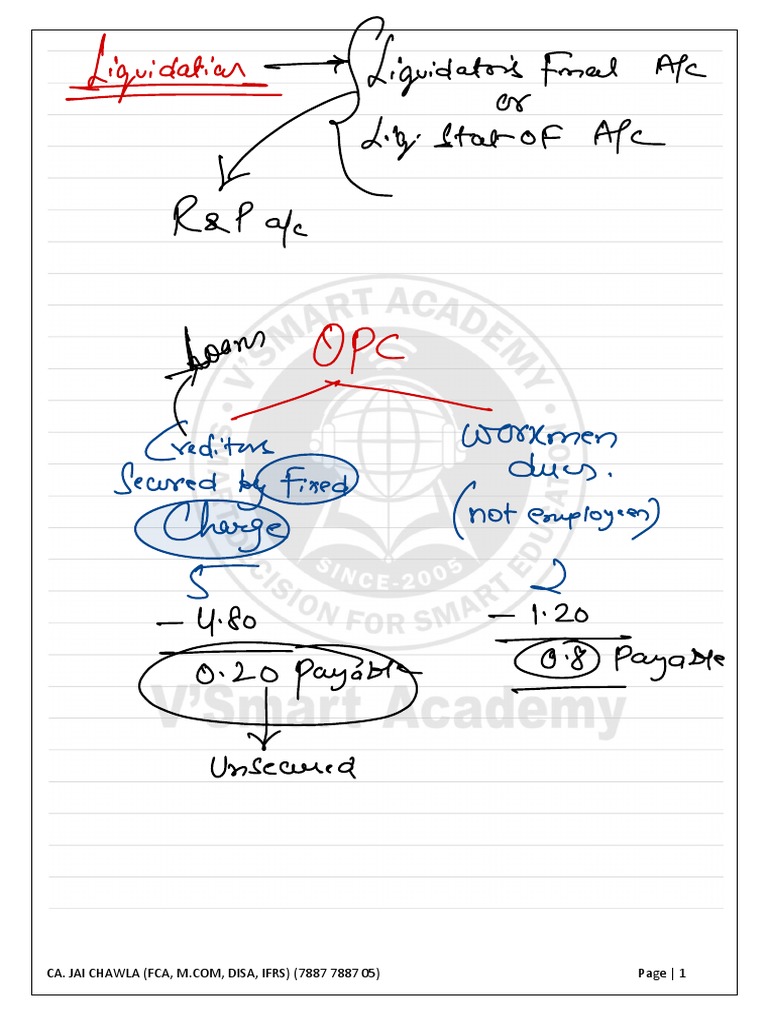 Liquidation → Liquidator's Final A/c
or
Liq. Stat OF A/c
R & P a/c
Loans
OPC
Creditors
Secured by Fixed
Charge
workmen
dues.
(not employees)
5
2
- 4.80
- 1.20
0.20 Payable
0.8 Payable
Unsecured
V'SMART ACADEMY
SMART DECISION FOR SMART EDUCATION
SINCE-2005
V'Smart Academy
CA. JAI CHAWLA (FCA, M.COM, DISA, IFRS) (7887 7887 05)
Page | 1